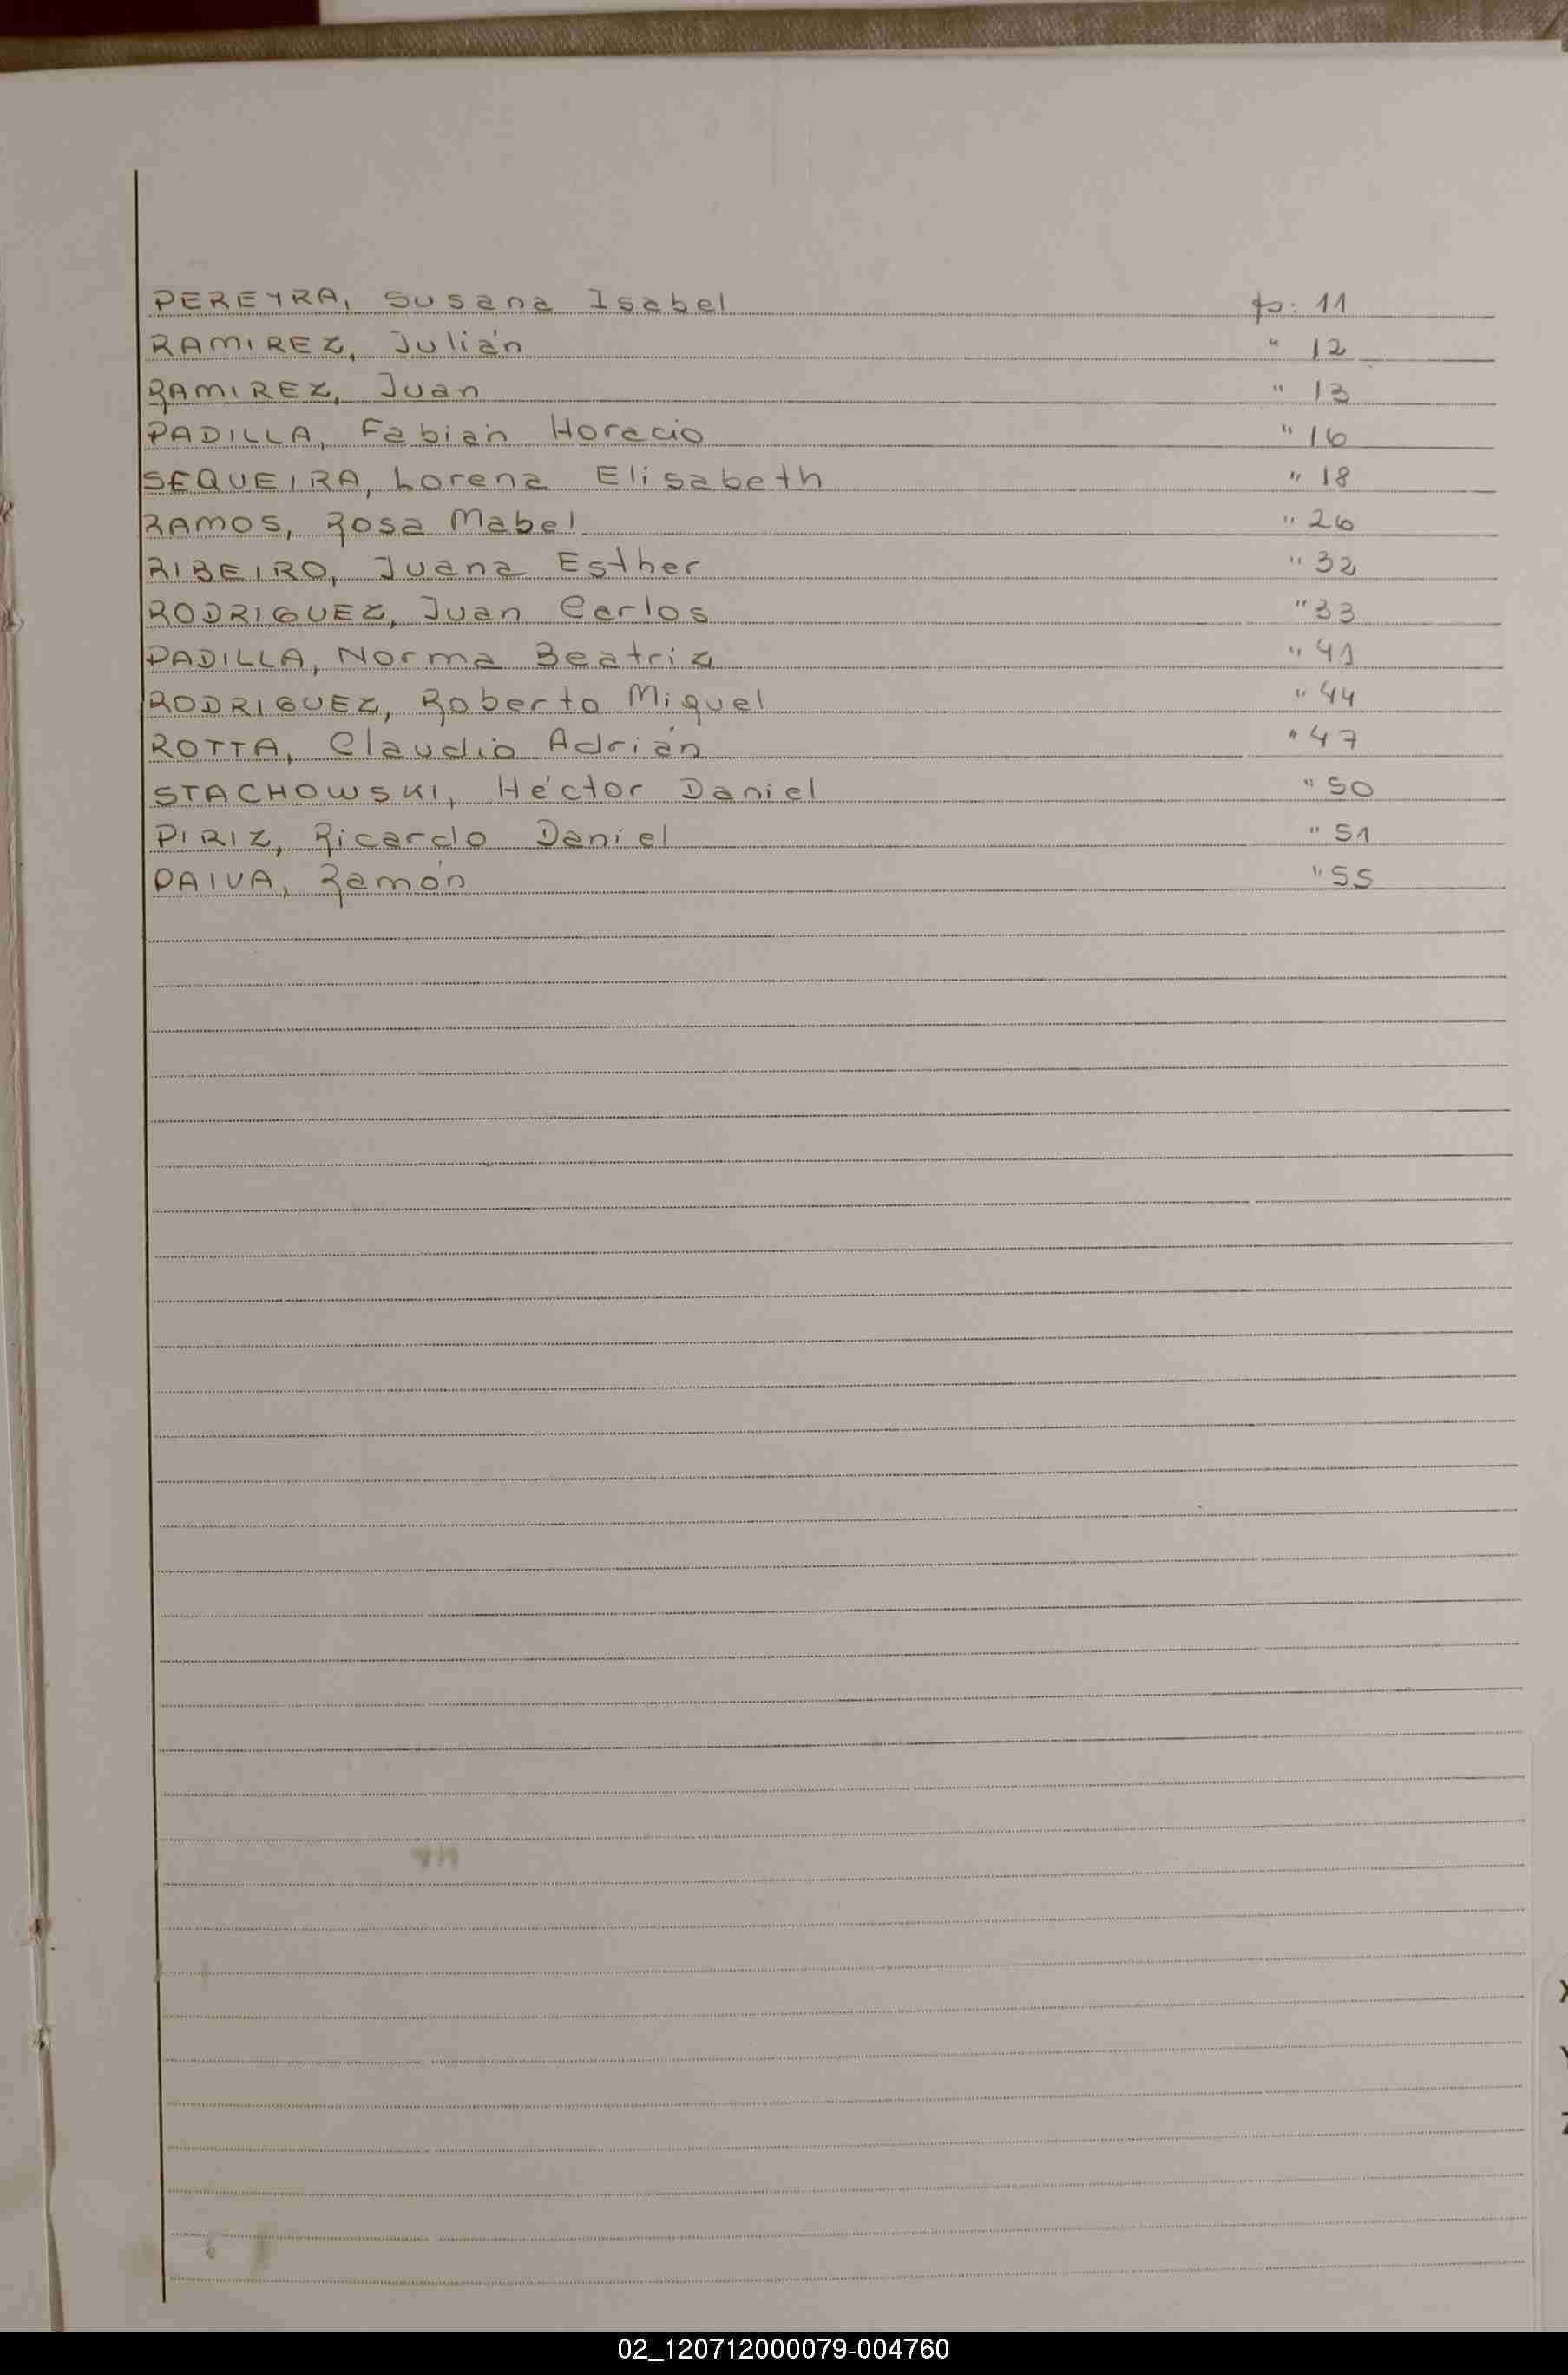 PEREYRA, Susana Isabel p: 11
RAMIREZ, Julián " 12
RAMIREZ, Juan " 13
PADILLA, Fabián Horacio " 16
SEQUEIRA, Lorena Elisabeth " 18
RAMOS, Rosa Mabel " 26
RIBEIRO, Juana Esther " 32
RODRIGUEZ, Juan Carlos " 33
PADILLA, Norma Beatriz " 41
RODRIGUEZ, Roberto Miguel " 44
ROTTA, Claudio Adrián " 47
STACHOWSKI, Héctor Daniel " 50
PIRIZ, Ricardo Daniel " 51
PAIVA, Ramón " 55
02_120712000079-004760